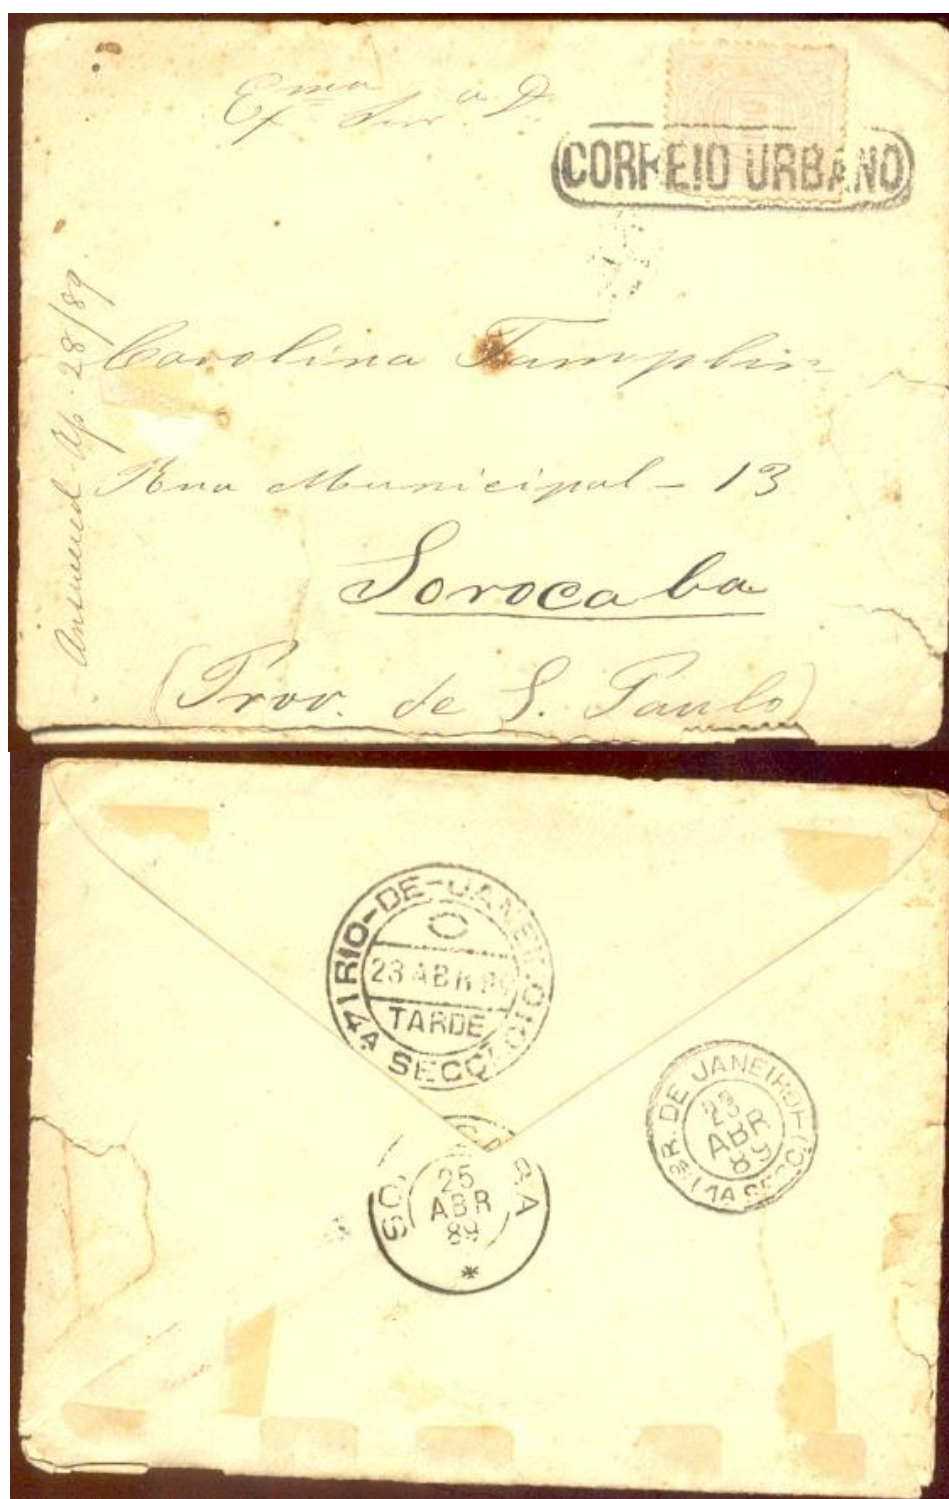 Exma Snra D.
CORREIO URBANO
Answered Ap. 28/89
Carolina Tamplin
Rua Municipal - 13
Sorocaba
(Prov. de S. Paulo)
RIO-DE-JANEIRO
23 ABR 89
TARDE
14A SECÇÃO
R. DE JANEIRO
23
ABR
89
1A SECÇ
SOROCABA
25
ABR
89
*